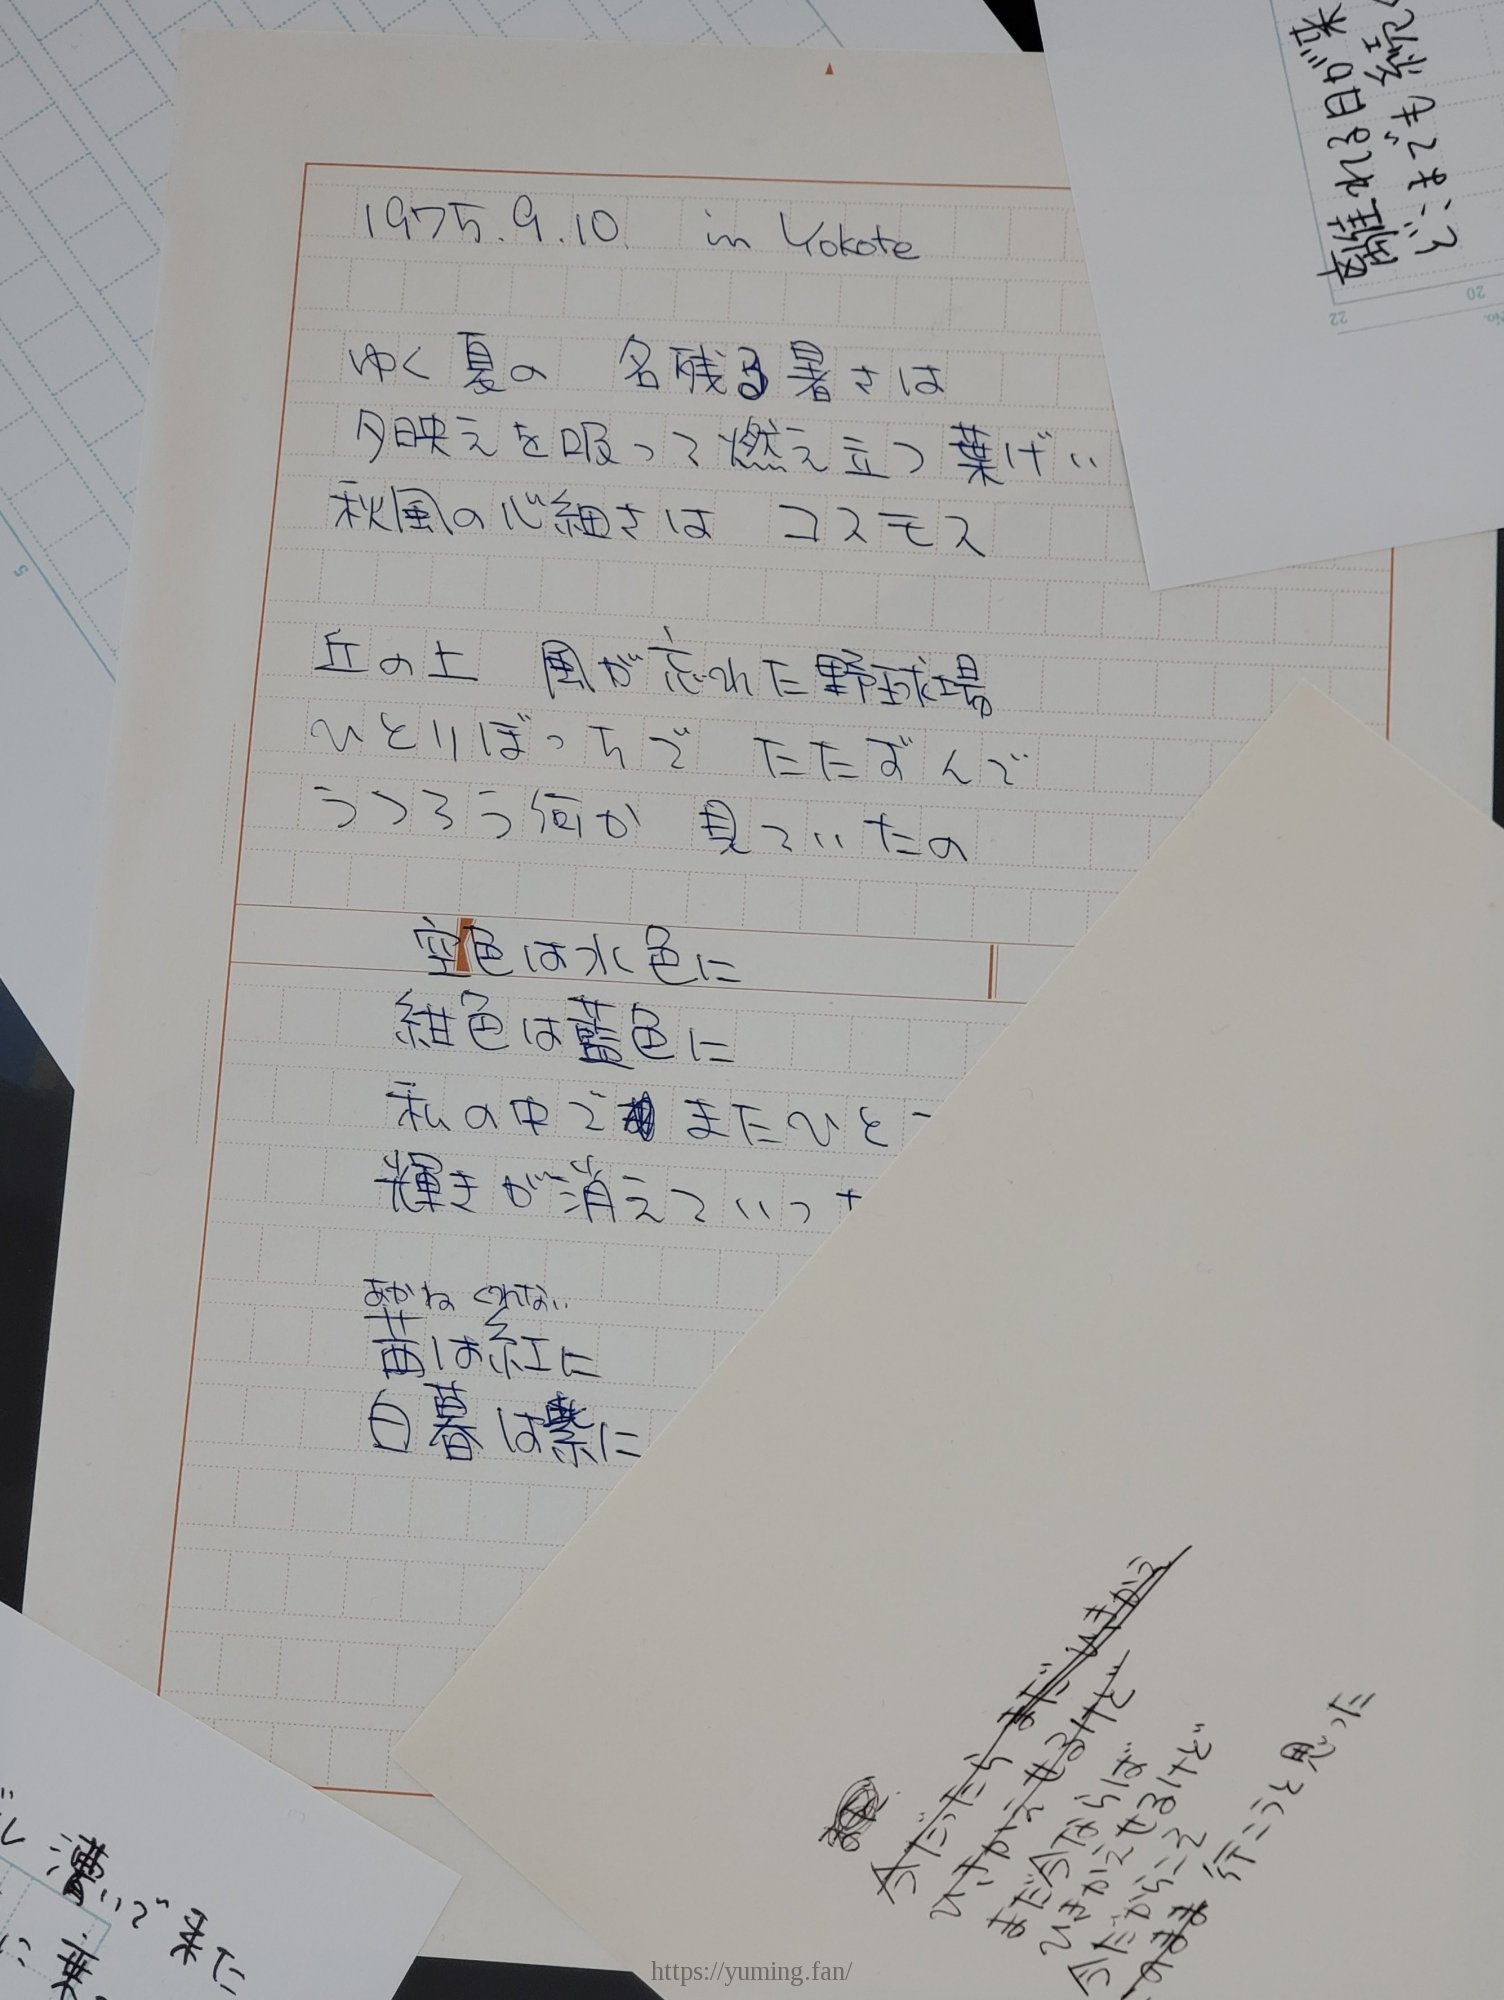 1975.9.10. in Yokote
ゆく夏の 名残る暑さは
夕映えを吸って燃え立つ葉げい
秋風の心細さは コスモス
丘の上 風が忘れた野球場
ひとりぼっちで たたずんで
うつろう何か 見ていたの
空色は水色に
紺色は藍色に
私の中で またひとつ
輝きが消えていった
あかね くれない
茜は紅に
白暮は紫に
離れる日が来
空もでもいう
今だったら まだ ひきかえ
ひきかえせるけど
まだ今ならば
ひきかえせるけど
今だからこそ
このまま 行こうと思った
漕いで来た
に乗
https://yuming.fan/
22
20
No.
5